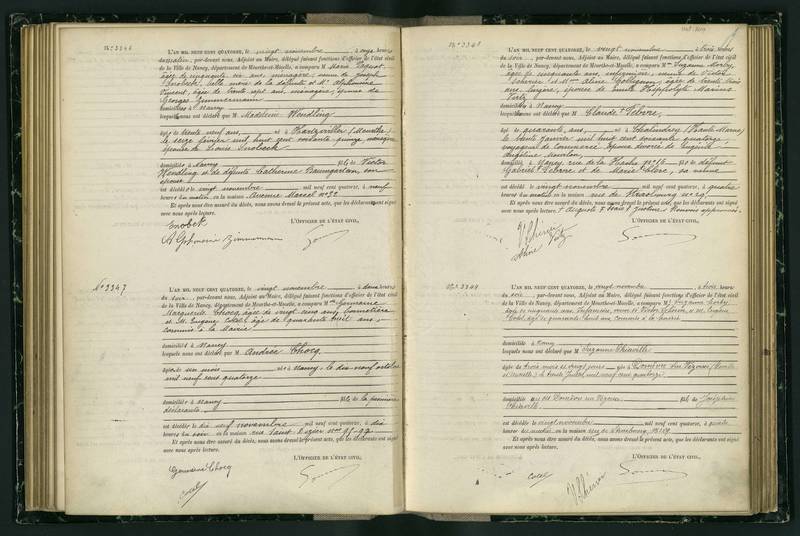 No 3346
L'AN MIL NEUF CENT QUATORZE, le vingt novembre à onze heures
du matin, par-devant nous, Adjoint au Maire, délégué faisant fonctions d'officier de l'état civil
de la Ville de Nancy, département de Meurthe-et-Moselle, a comparu M Maria
âgée de cinquante six ans, ménagère, veuve de Joseph
belle mère de la défunte et Me Alphonsine
Vincent, âgée de trente sept ans, ménagère, épouse de
Georges Zimmermann
domiciliées à Nancy
lesquelles nous ont déclaré que M Madeleine Wendling
âgée de trente neuf ans, née à Hartzviller (Meurthe)
le seize février mil huit cent soixante quinze, ménagère
épouse de Louis
domiciliée à Nancy fille de Victor
Wendling et de défunte Catherine Baumgarten son
épouse
est décédée le vingt novembre mil neuf cent quatorze, à neuf
heures du matin, en la maison Avenue No 72
Et après nous être assuré du décès, nous avons dressé le présent acte, que les déclarants ont signé
avec nous après lecture.
L'OFFICIER DE L'ÉTAT CIVIL,
Zimmermann
No 3347
L'AN MIL NEUF CENT QUATORZE, le vingt novembre à deux heures
du soir, par-devant nous, Adjoint au Maire, délégué faisant fonctions d'officier de l'état civil
de la Ville de Nancy, département de Meurthe-et-Moselle, a comparu M Germaine
Marguerite Chocq, âgée de vingt cinq ans,
et M. Eugène Colel, âgé de quarante huit ans,
commis à la Mairie
domiciliés à Nancy
lesquels nous ont déclaré que M Andrée Chocq
âgée de un mois née à Nancy, le dix neuf octobre
mil neuf cent quatorze
domiciliée à Nancy fille de la première
déclarante
est décédée le dix neuf novembre mil neuf cent quatorze, à dix
heures du soir en la maison rue Saint Dizier Nos 95-97
Et après nous être assuré du décès, nous avons dressé le présent acte, que les déclarants ont signé
avec nous après lecture.
L'OFFICIER DE L'ÉTAT CIVIL,
Germaine Chocq
Colel
No 3348
L'AN MIL NEUF CENT QUATORZE, le vingt novembre à trois heures
du soir, par-devant nous, Adjoint au Maire, délégué faisant fonctions d'officier de l'état civil
de la Ville de Nancy, département de Meurthe-et-Moselle, a comparu Me Suzanne
âgée de cinquante ans, infirmière, veuve de Victor
et Me Aline âgée de trente trois
ans, lingère, épouse de Emile Hippolyte Marius
domiciliées à Nancy
lesquelles nous ont déclaré que M Claude Febvre,
âgé de quarante ans, né à Chalindrey (Haute Marne)
le trente janvier mil huit cent soixante quatorze,
voyageur de commerce, époux divorcé de Eugénie
Angéline
domicilié à Nancy, rue de la No 16 fils de défunt
Gabriel Febvre et de Marie Clerc, sa veuve
est décédé le vingt novembre mil neuf cent quatorze, à quatre
heures du matin en la maison rue de Strasbourg No 29
Et après nous être assuré du décès, nous avons dressé le présent acte, que les déclarants ont signé
avec nous après lecture.
L'OFFICIER DE L'ÉTAT CIVIL,
Aline
No 3349
L'AN MIL NEUF CENT QUATORZE, le vingt novembre à trois heures
du soir, par-devant nous, Adjoint au Maire, délégué faisant fonctions d'officier de l'état civil
de la Ville de Nancy, département de Meurthe-et-Moselle, a comparu Me Suzanne
âgée de cinquante ans, infirmière, veuve de Victor et M. Eugène
Colel, âgé de quarante huit ans, commis à la Mairie
domiciliés à Nancy
lesquels nous ont déclaré que M Suzanne Thiaville
âgée de trois mois et vingt jours née à
et Moselle) le trente juillet mil neuf cent quatorze
domiciliée fille de Joséphine
Thiaville
est décédée le vingt novembre mil neuf cent quatorze, à
heures du matin en la maison rue de Strasbourg, No 29
Et après nous être assuré du décès, nous avons dressé le présent acte, que les déclarants ont signé
avec nous après lecture.
L'OFFICIER DE L'ÉTAT CIVIL,
Colel